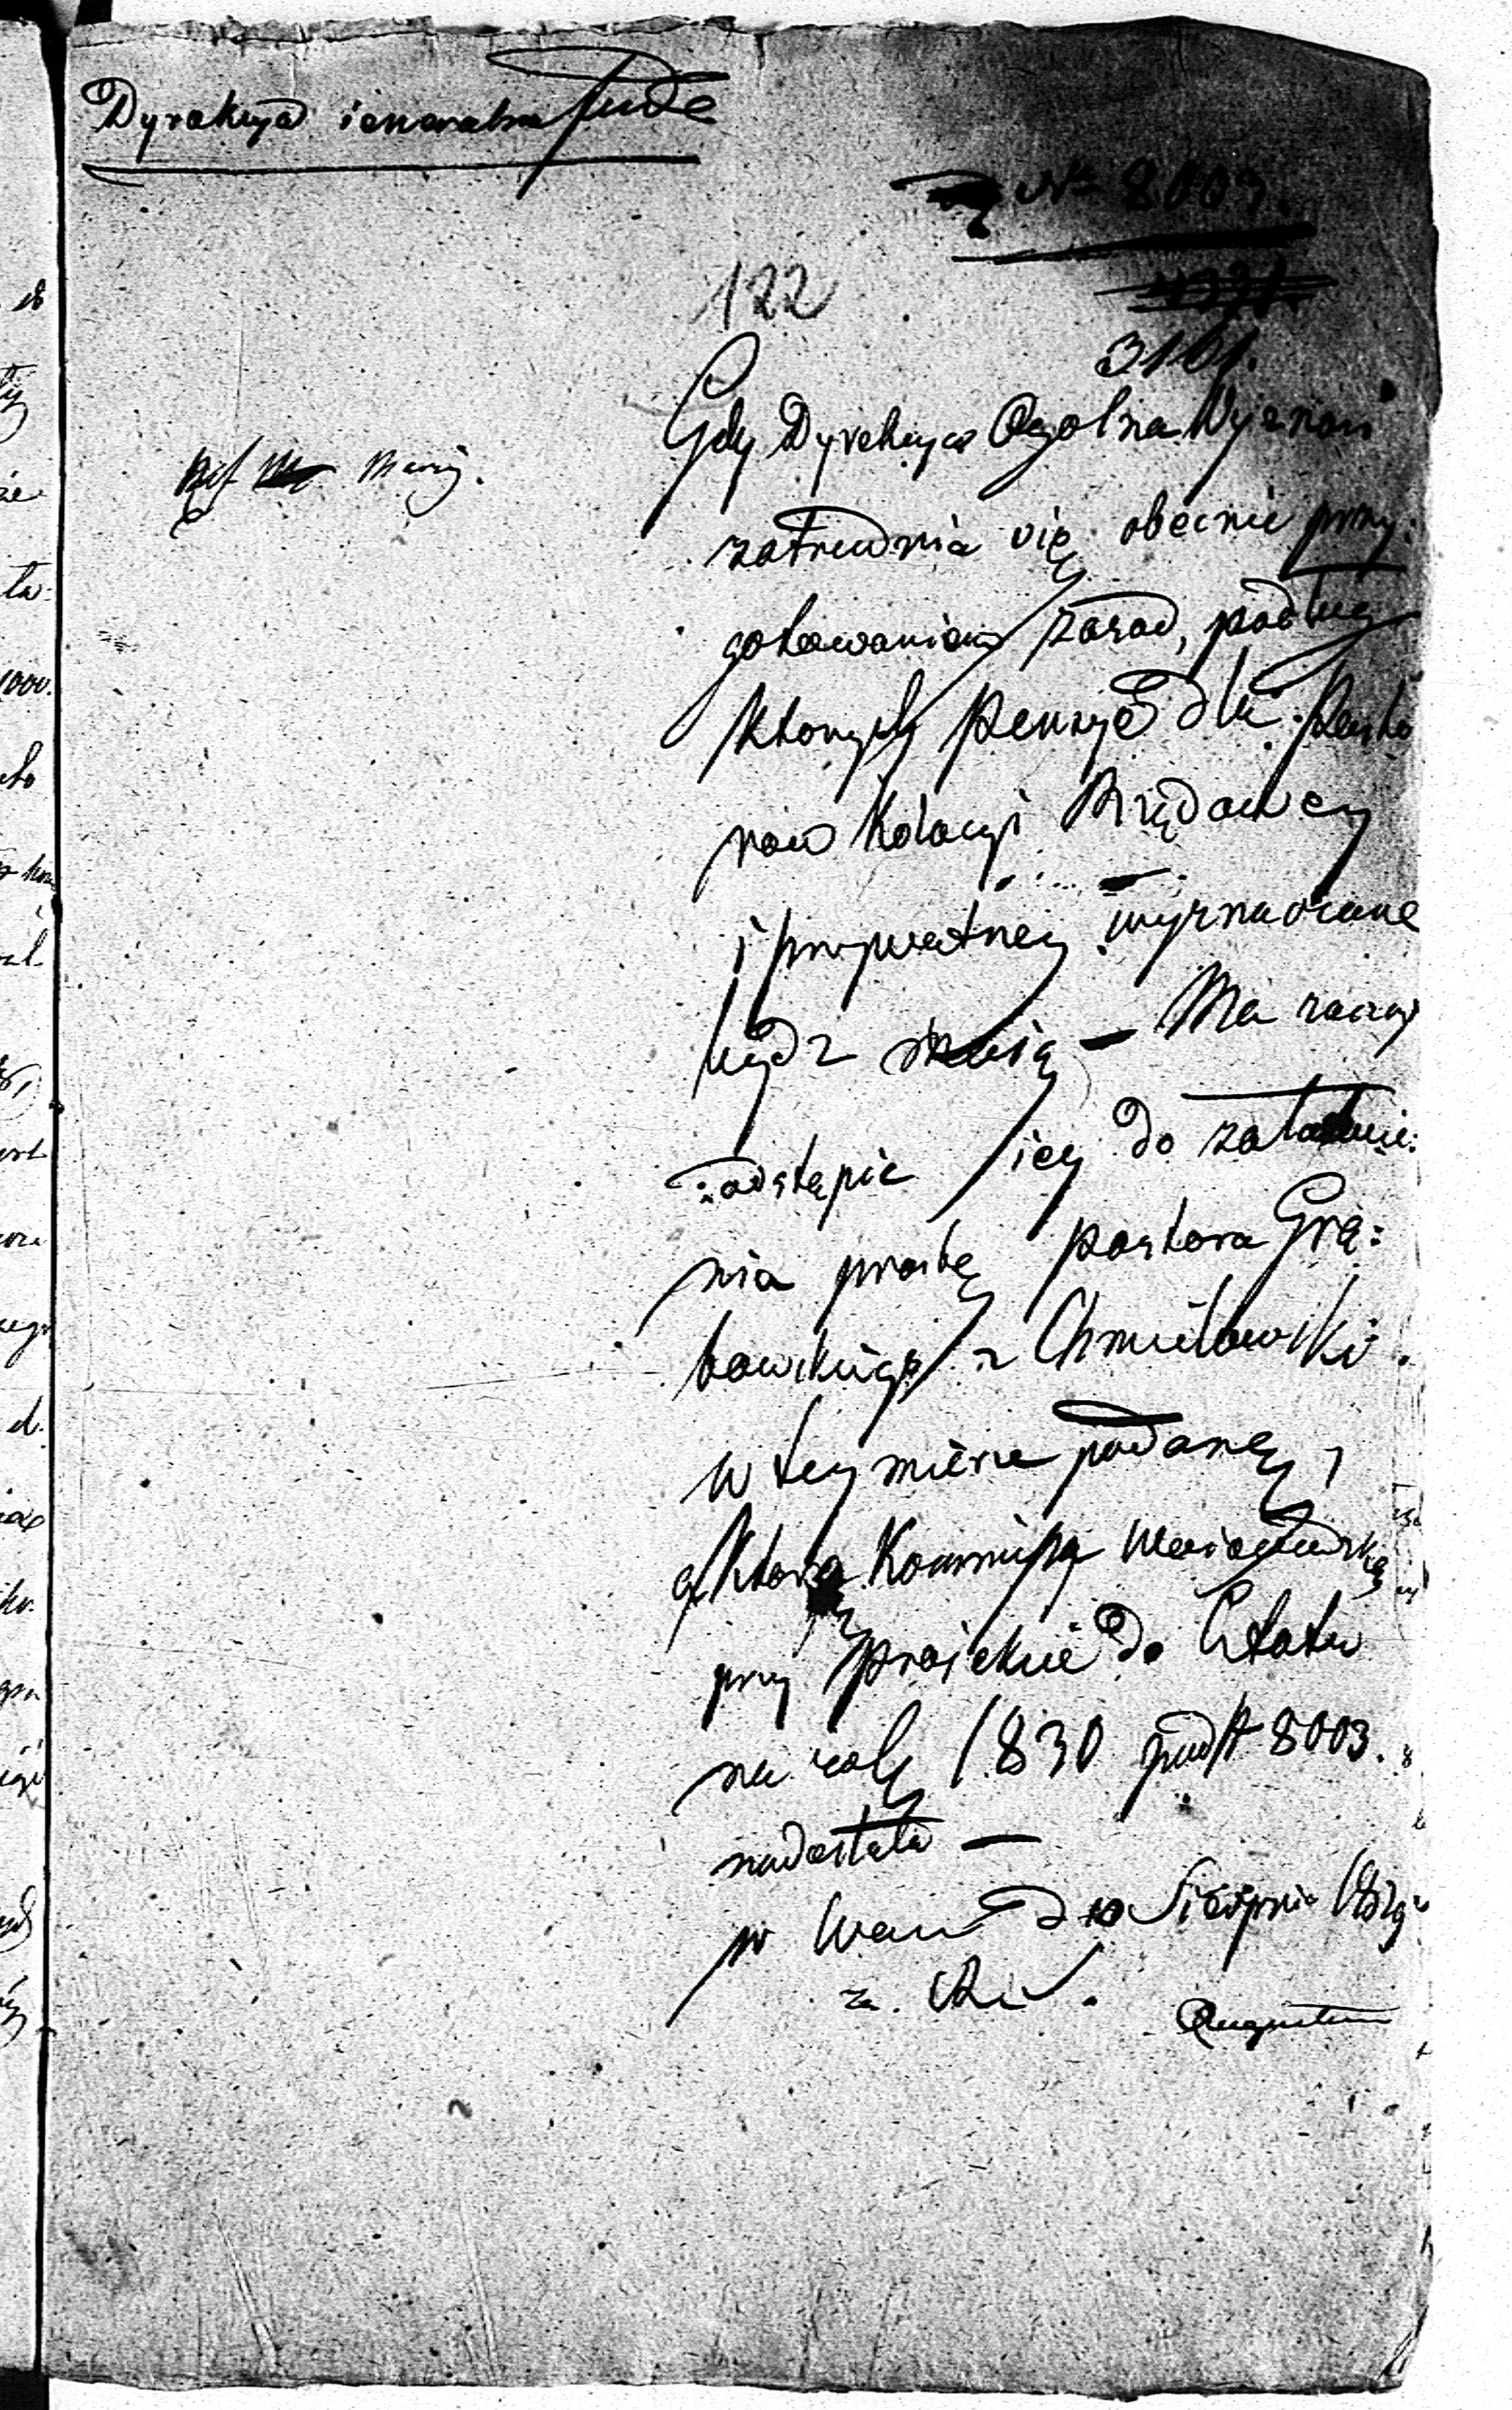 Dyrekcya ieneralna Fund
Nr 8003.
122
3161.
Gdy Dyrekcya Ogolna Wyznań
zatrudnia się obecnie przy:
gotowaniem zasad, podług
których pensye dla Pasto
row Kolacyi Rządowey
i prywatney wyznaczane
bydz maią — Ma zaszczyt
odstąpić iey do załatwie:
nia prosbę pastora Grą:
bowskiego z Chmielowski
w tey mierze podaną,
którą Kommissya
przy proiekcie do Etatu
na rok 1830 pod Nr 8003.
nadesłała —
w Warsz d 10 Sierpnia 1829
Augustin